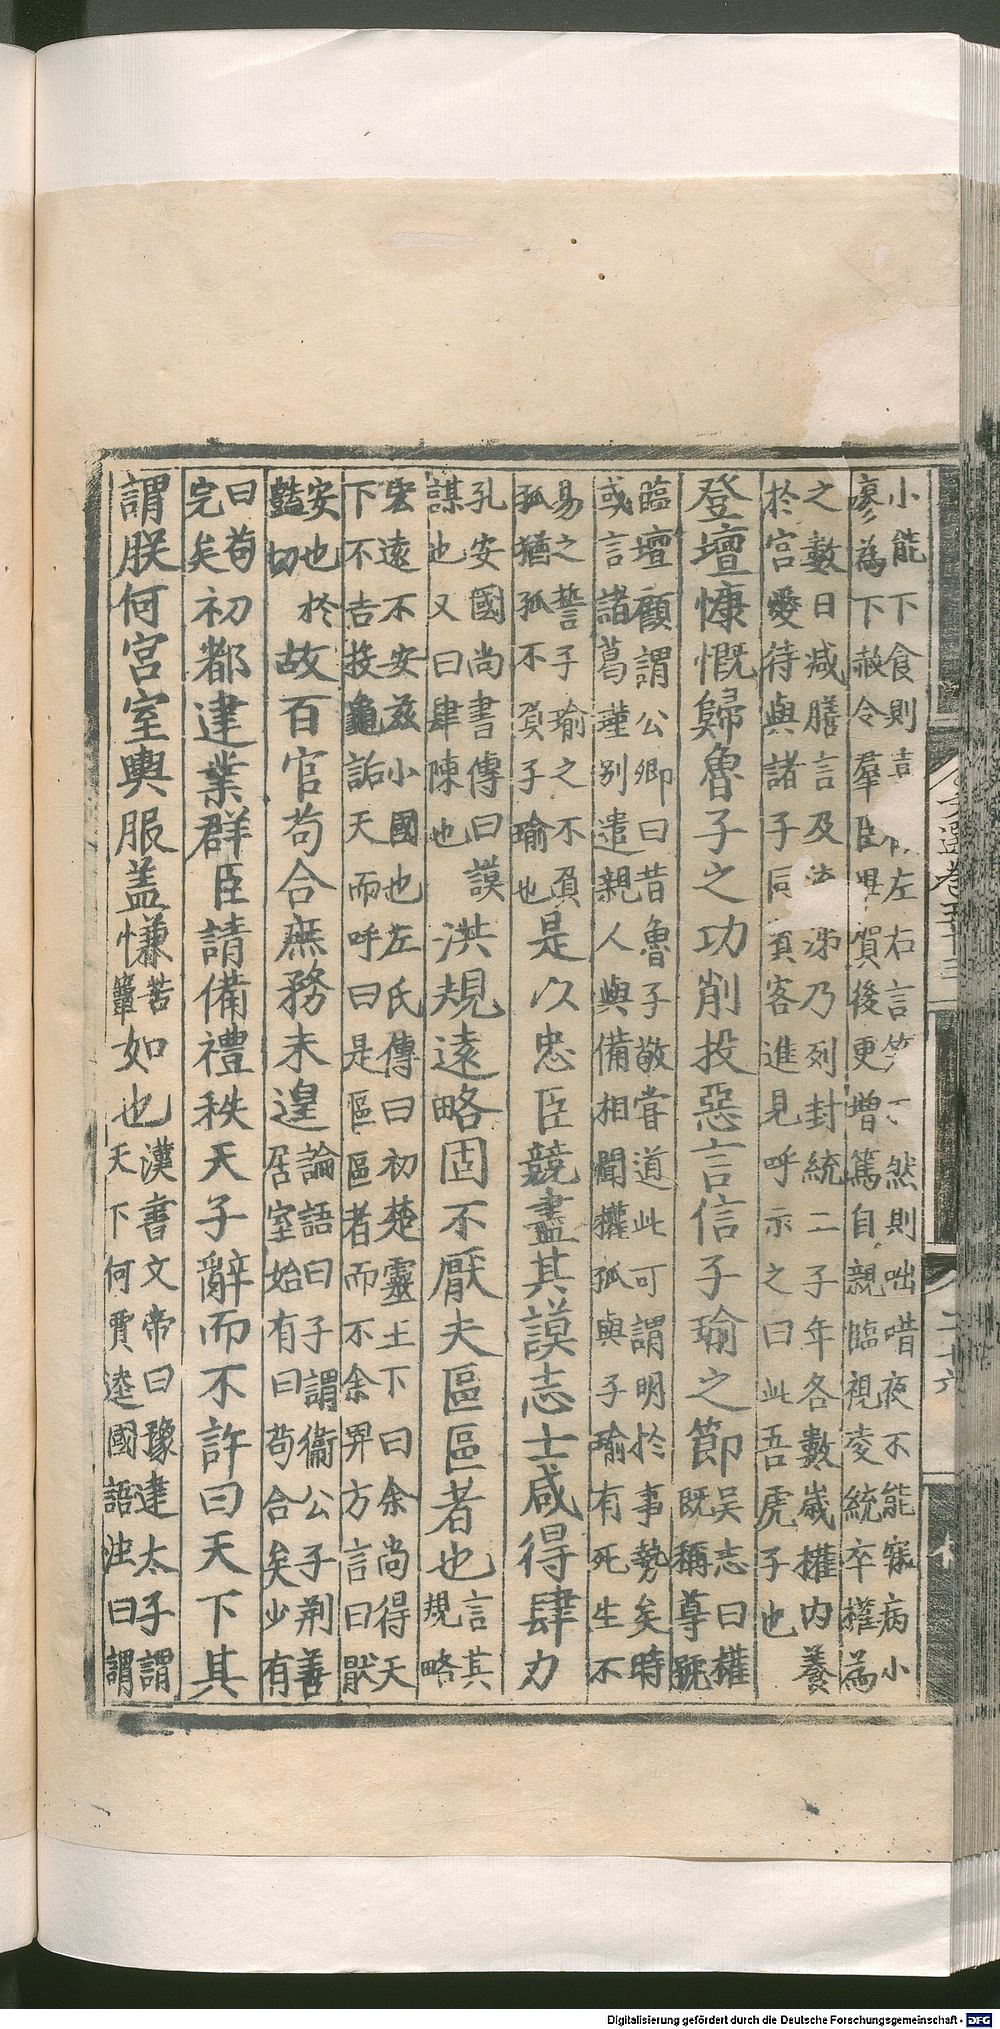 小能下食則喜 左右言笑 然則咄唶夜不能寐病小
瘳為下赦令羣臣畢賀後更增篤自親臨視凌統卒權為
之數日減膳言及流涕乃列封統二子年各數歲權內養
於宮愛待與諸子同賓客進見呼示之曰此吾虎子也
登壇慷慨歸魯子之功削投惡言信子瑜之節
吳志曰權
既稱尊號
臨壇顧謂公卿曰昔魯子敬嘗道此可謂明於事勢矣時
或言諸葛瑾別遣親人與備相聞權孤與子瑜有死生不
易之誓子瑜之不負
孤猶孤不負子瑜也
是以忠臣競盡其謨志士咸得肆力
孔安國尚書傳曰謨
謀也又曰肆陳也
洪規遠略固不厭夫區區者也
言其
規略
宏遠不安茲小國也左氏傳曰初楚靈王下曰余尚得天
下不吉投龜詬天而呼曰是區區者而不余畀方言曰猒
安也於
豔切
故百官苟合庶務未遑
論語曰子謂衛公子荆善
居室始有曰苟合矣少有
曰苟
完矣
初都建業群臣請備禮秩天子辭而不許曰天下其
謂朕何宮室輿服蓋慊
苦
簟
如也
漢書文帝曰豫建太子謂
天下何賈逵國語注曰謂
文選卷五十三
二十六
Digitalisierung gefördert durch die Deutsche Forschungsgemeinschaft - DFG